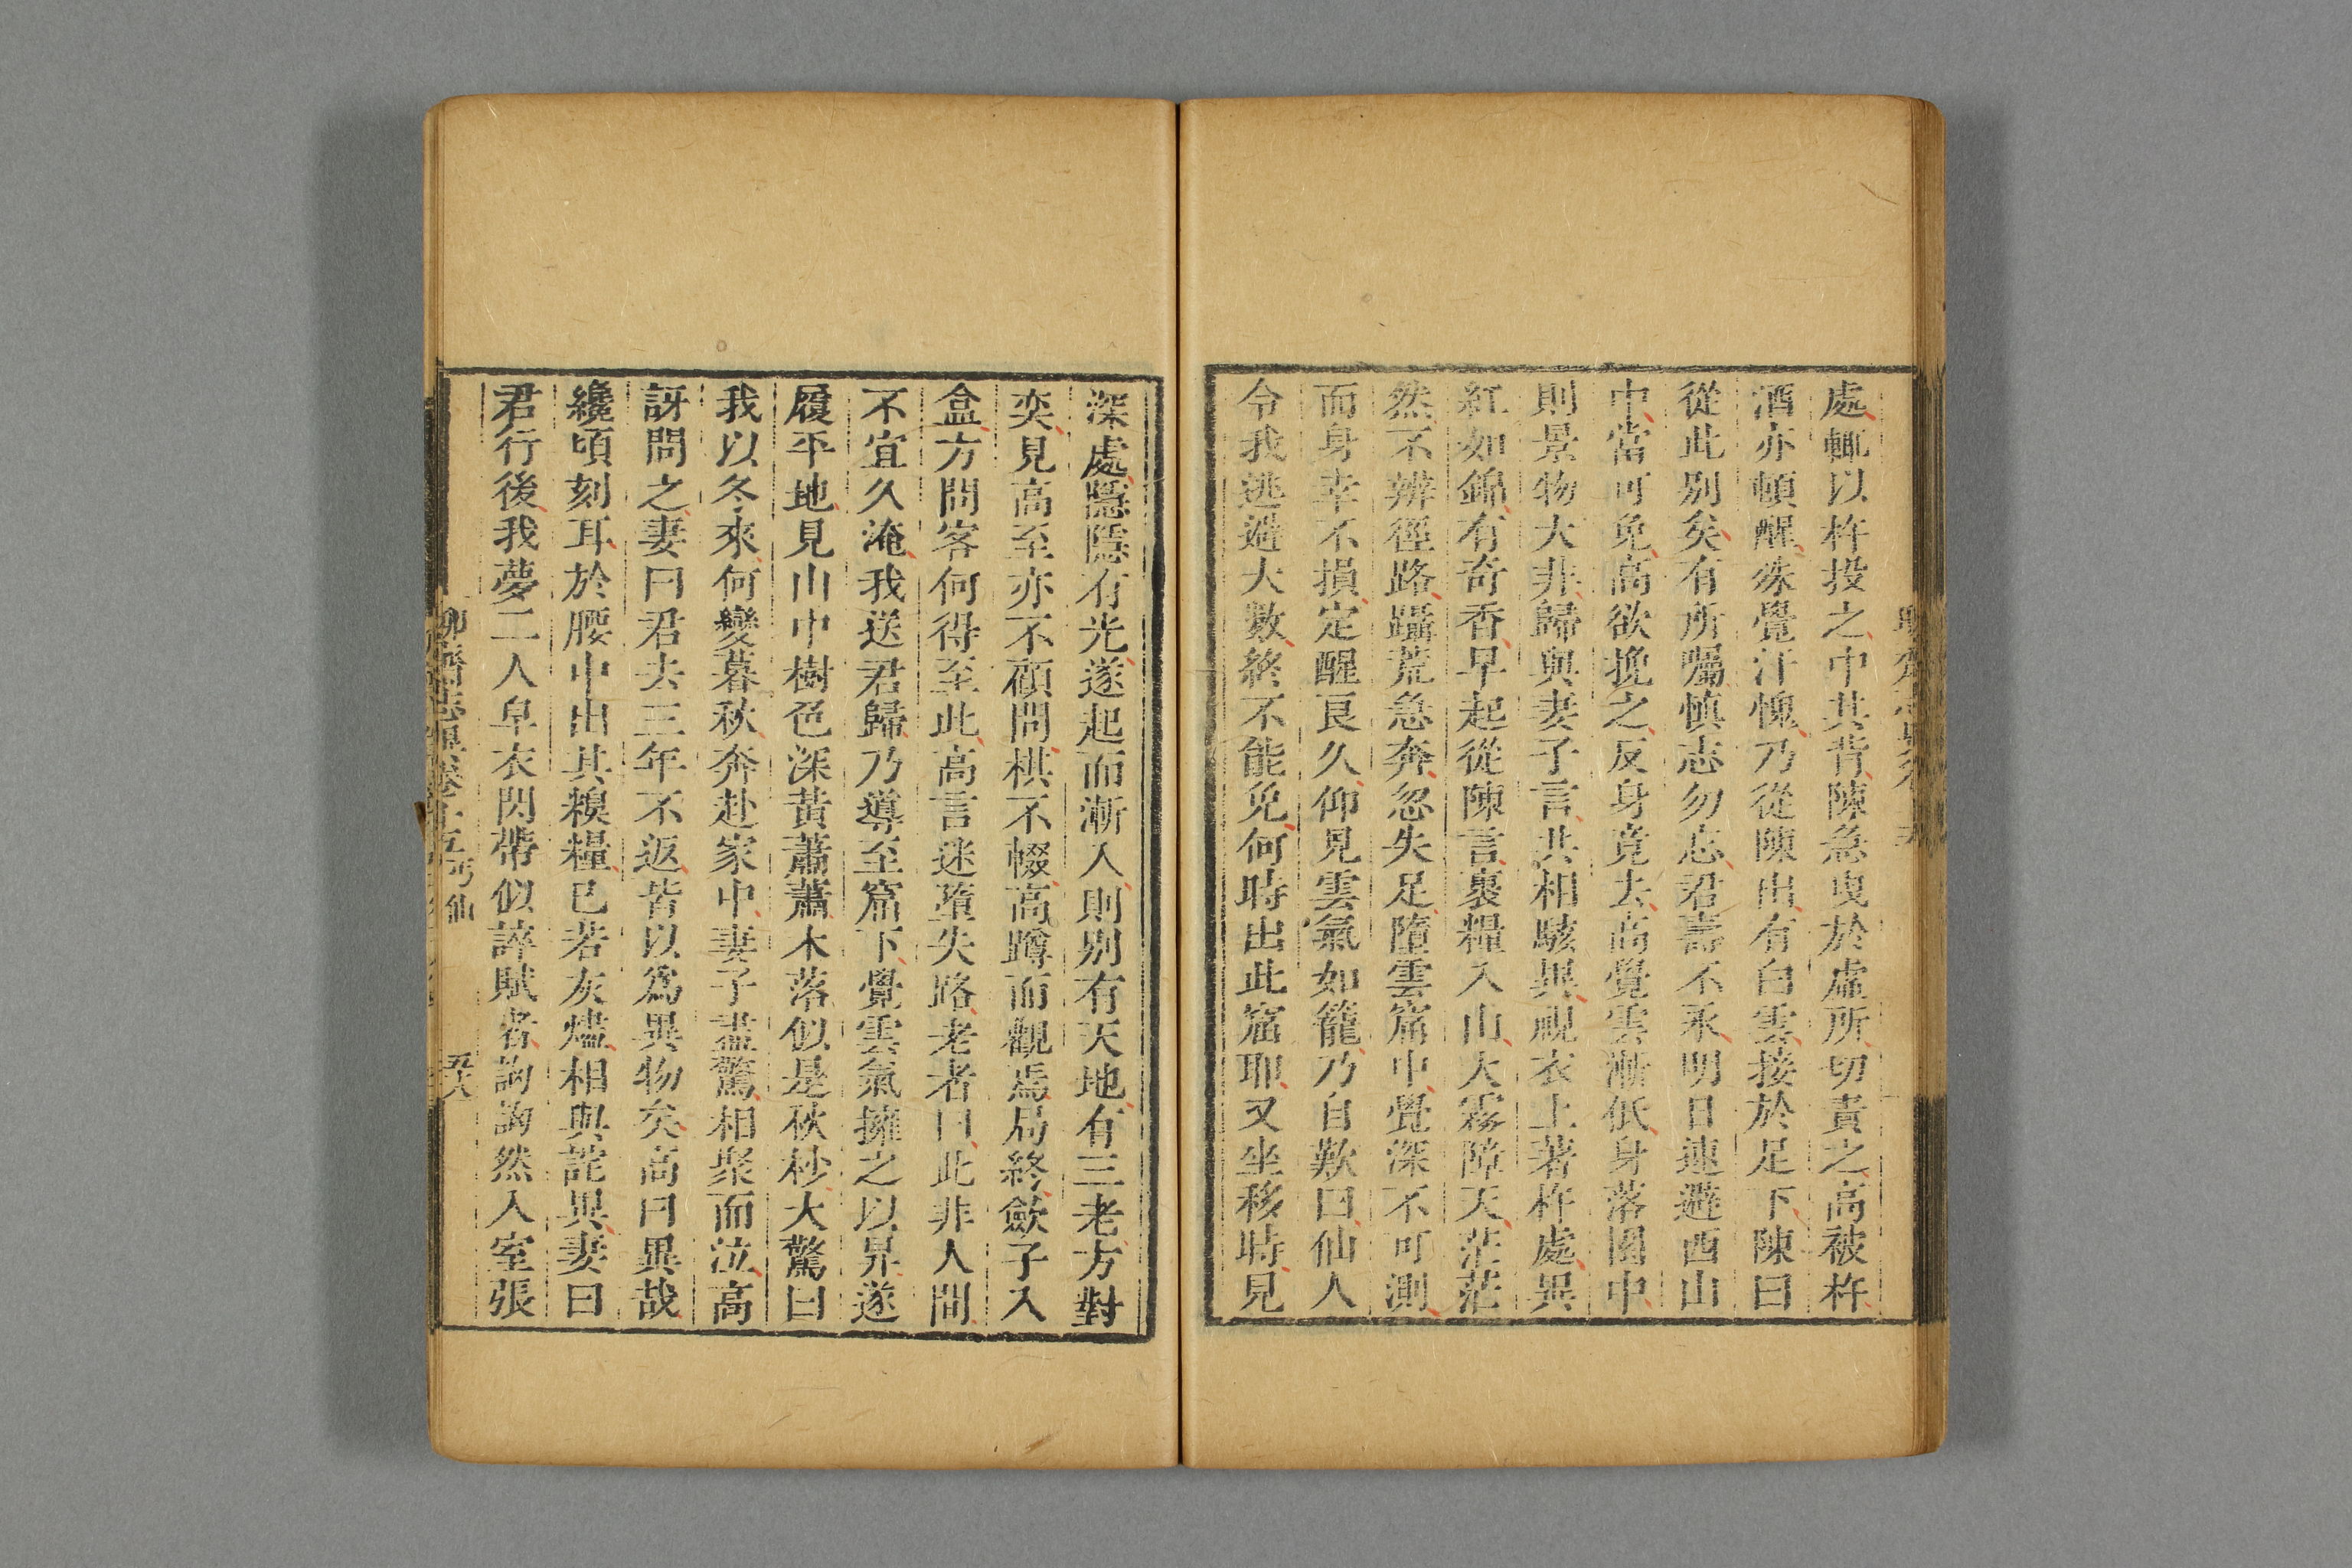 處輒以杵投之中其背陳急曳於虛所切責之高被杵
酒亦頓醒殊覺汗愧乃從陳出有白雲接於足下陳曰
從此別矣有所囑慎志勿忘君壽不永明日速避西山
中當可免高欲挽之反身竟去高覺雲漸低身落園中
則景物大非歸與妻子言共相駭異視衣上著杵處異
紅如錦有奇香早起從陳言裹糧入山大霧障天茫茫
然不辨徑路躡荒急奔忽失足墮雲窟中覺深不可測
而身幸不損定醒良久仰見雲氣如籠乃自歎曰仙人
令我逃避大數終不能免何時出此窟耶又坐移時見
深處隱隱有光遂起而漸入則別有天地有三老方對
奕見高至亦不顧問棋不輟高蹲而觀焉局終歛子入
盒方問客何得至此高言迷墮失路老者曰此非人間
不宜久淹我送君歸乃導至窟下覺雲氣擁之以昇遂
履平地見山中樹色深黃蕭蕭木落似是秋杪大驚曰
我以冬來何變暮秋奔赴家中妻子盡驚相聚而泣高
訝問之妻曰君去三年不返皆以爲異物矣高曰異哉
纔頃刻耳於腰中出其糗糧已若灰燼相與詫異妻曰
君行後我夢二人皁衣閃帶似誶賦者訩訩然入室張
聊齋志異卷十五 丐仙 五十八